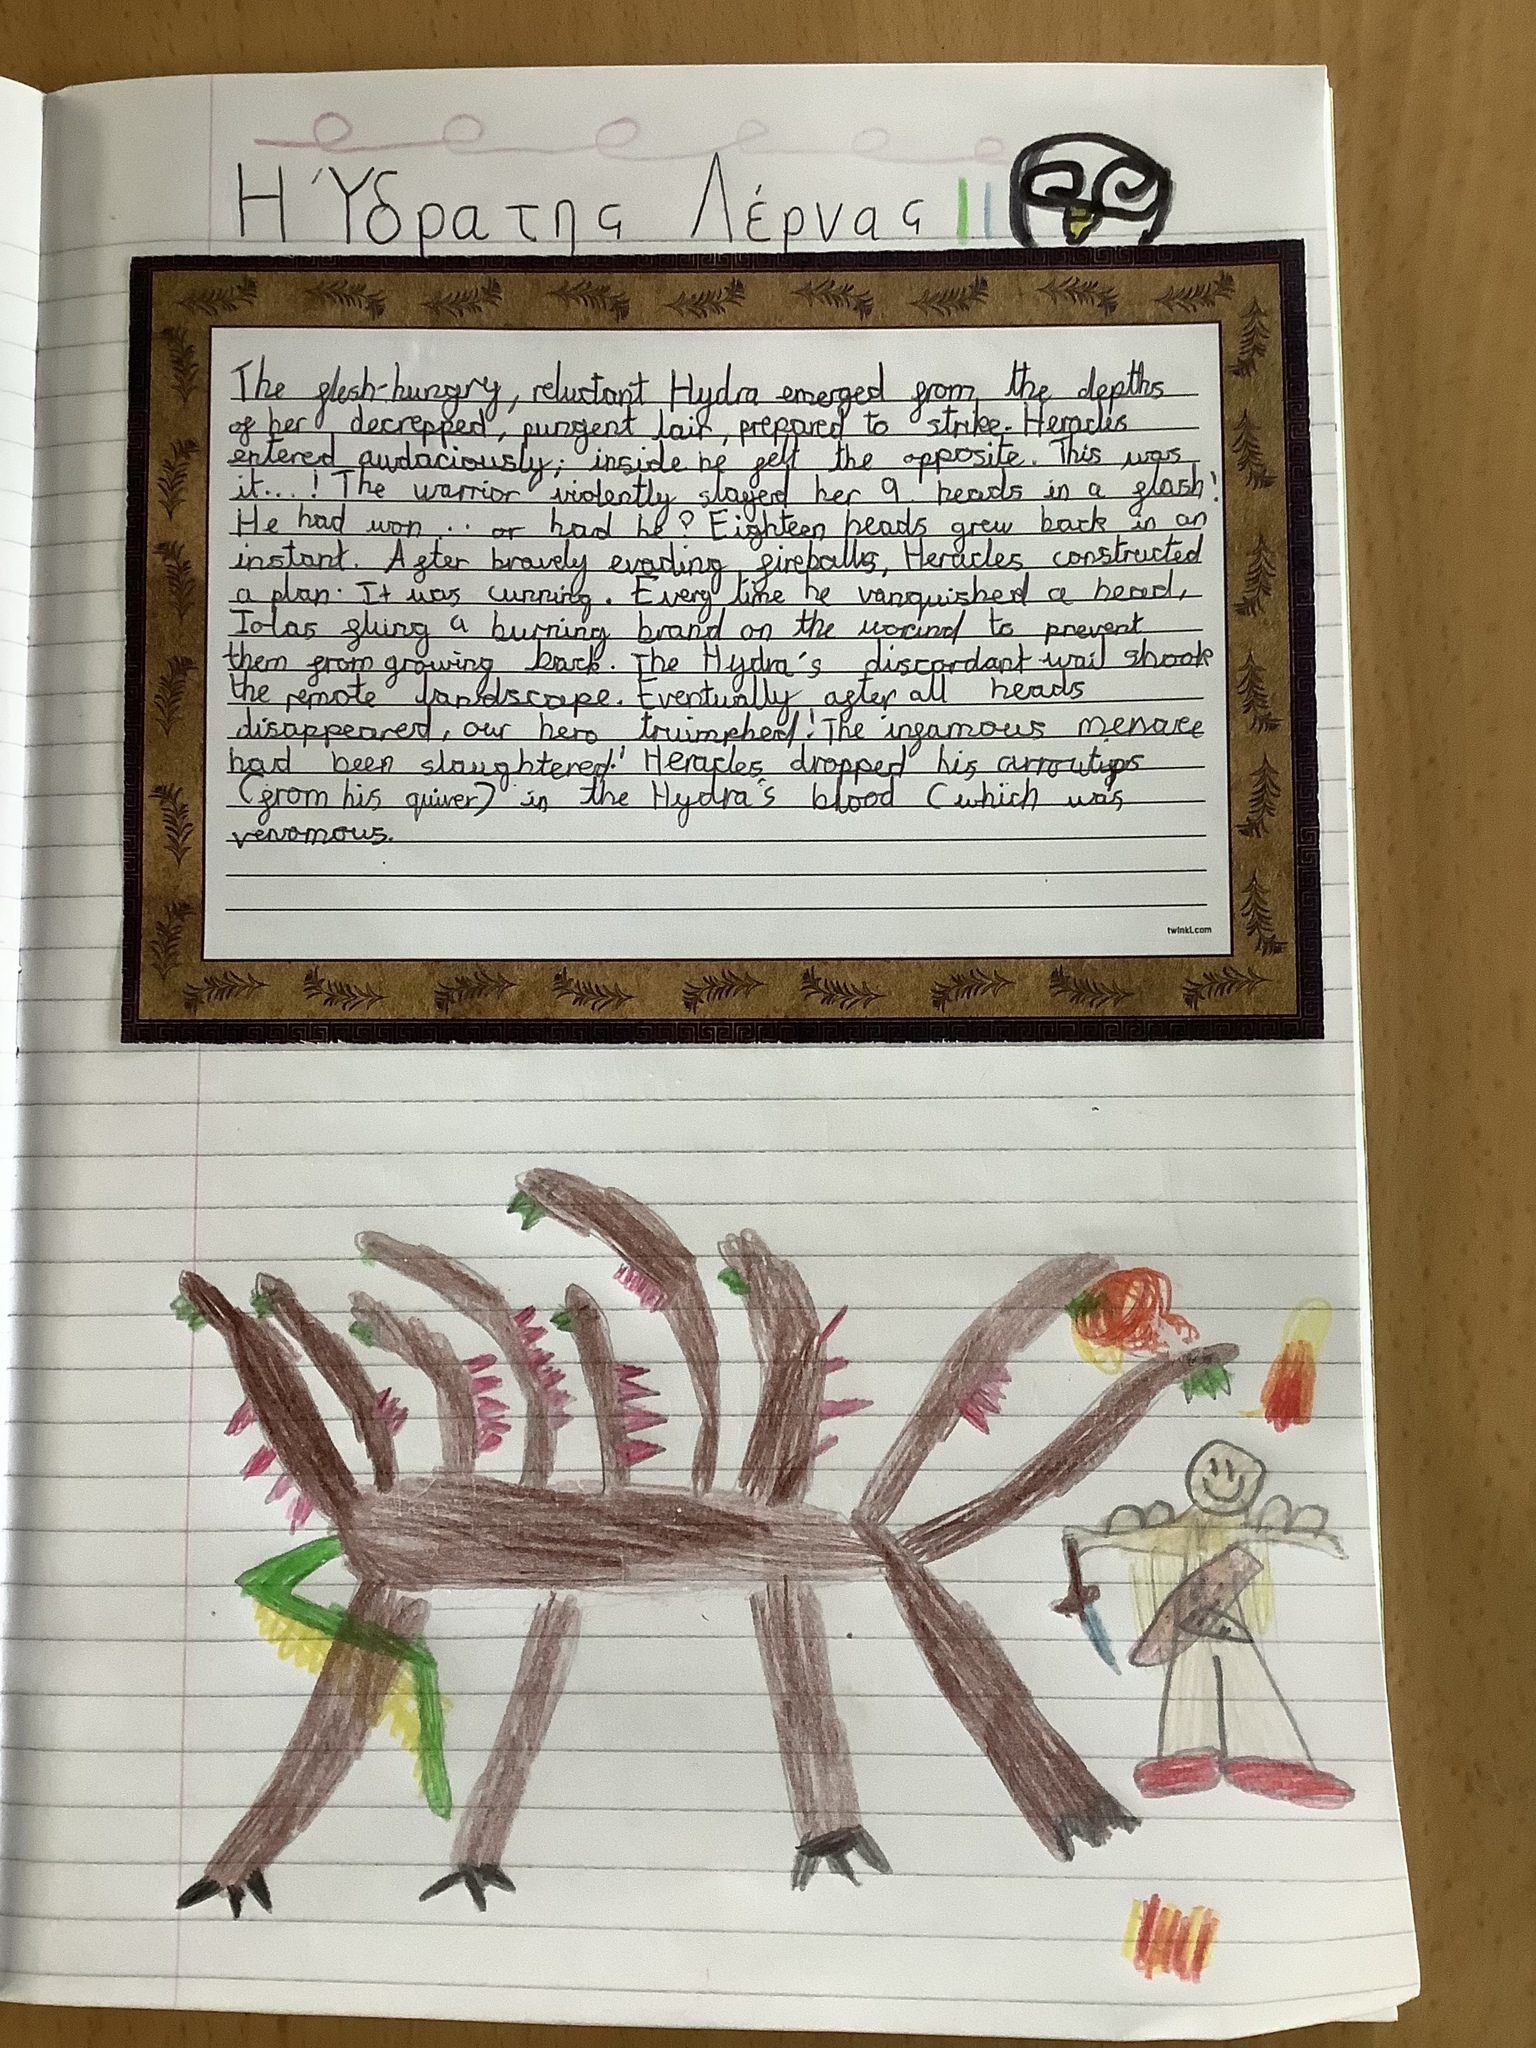 Η Ύδρα της Λέρνας
The flesh-hungry, reluctant Hydra emerged from the depths
of her decrepped, pungent lair, prepared to strike. Heracles
entered audaciously; inside he felt the opposite. This was
it...! The warrior violently slayed her 9 heads in a flash!
He had won... or had he? Eighteen heads grew back in an
instant. After bravely evading fireballs, Heracles constructed
a plan. It was cunning. Every time he vanquished a head,
Iolas fluing a burning brand on the wound to prevent
them from growing back. The Hydra's discordant wail shook
the remote landscape. Eventually after all heads
disappeared, our hero truimphed! The infamous menace
had been slaughtered! Heracles dropped his arrowtips
(from his quiver) in the Hydra's blood (which was
venomous.
twinkl.com